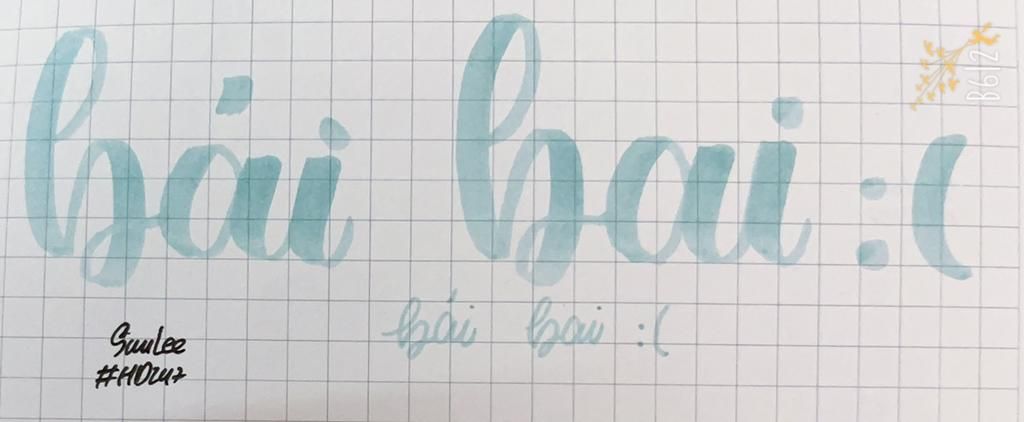 bái bai :(
bái bai :(
#HD247
B612